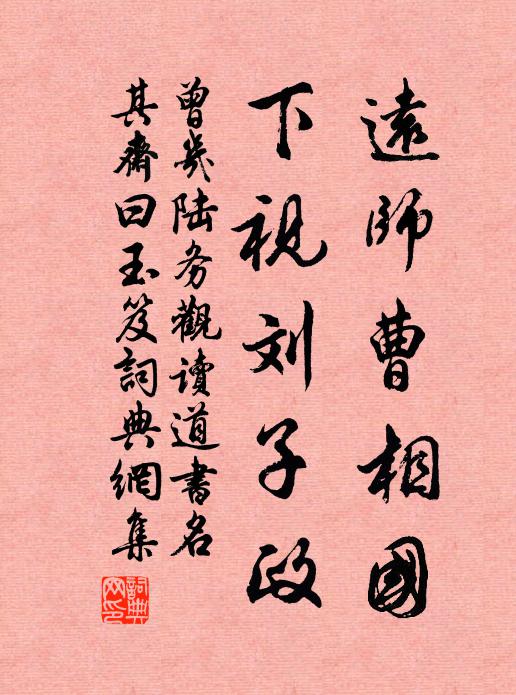 遠師曹相國
下視刘子政
曾几陆务觀读道書名
其齋曰玉笈詞典網集
詞典网印